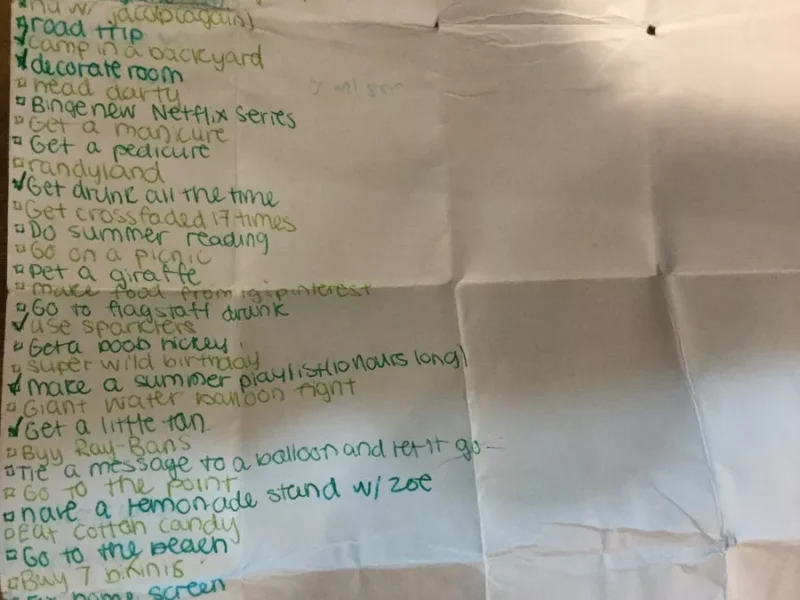 w/ jacob (again)
road trip
camp in a backyard
decorate room
head darty
Binge new Netflix series
Get a manicure
Get a pedicure
randyland
Get drunk all the time
Get crossfaded 17 times
Do summer reading
Go on a picnic
pet a giraffe
make food from ig/pinterest
Go to flagstaff drunk
use sparklers
Get a boob hickey
super wild birthday
make a summer playlist (10 hours long)
Giant water balloon fight
Get a little tan
Buy Ray-Bans
Tie a message to a balloon and let it go
Go to the point
have a lemonade stand w/ zoe
Eat cotton candy
Go to the beach
Buy 7 bikinis
home screen